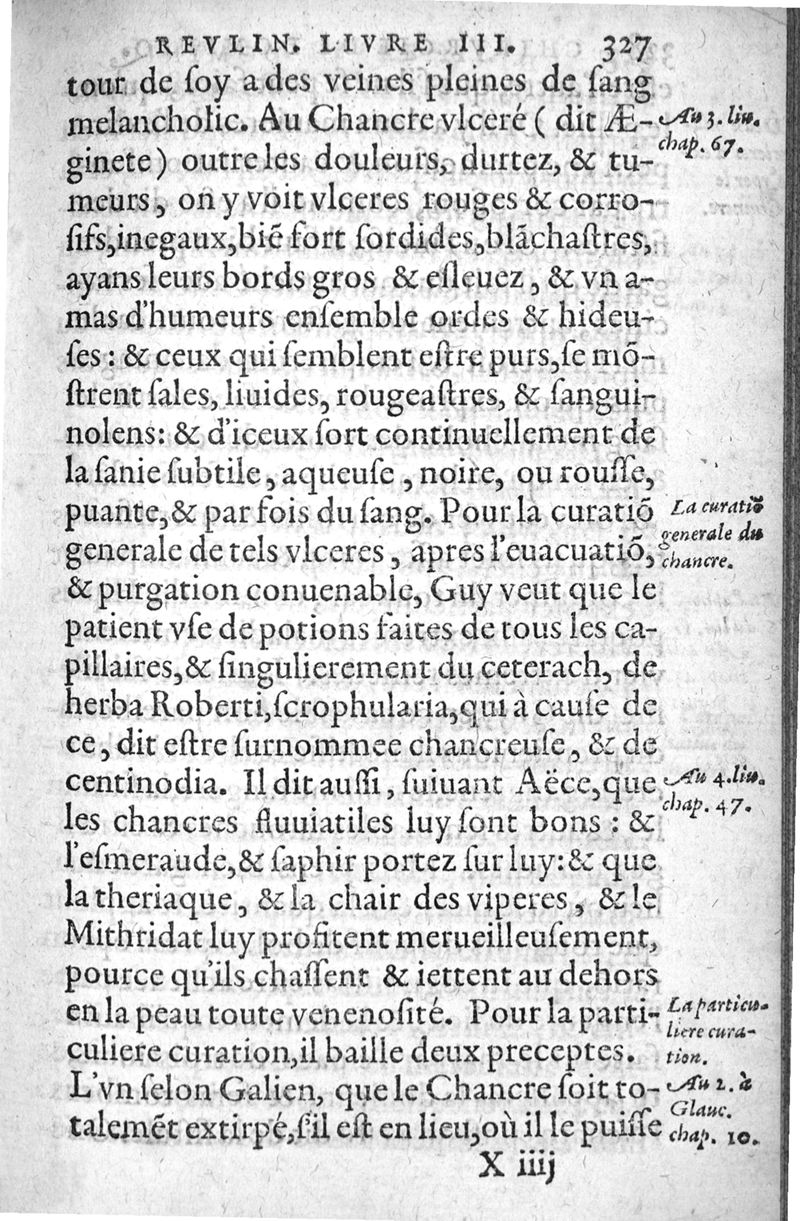 REVLIN. LIVRE III. 327
tour de ſoy a des veines pleines de ſang
melancholic. Au Chancre vlceré ( dit Æ-
Au 3. liu.
chap. 67.
ginete) outre les douleurs, durtez, & tu-
meurs, on y voit vlceres rouges & corro-
ſifs,inegaux,biẽ fort ſordides,blãchaſtres,
ayans leurs bords gros & eſleuez, & vn a-
mas d'humeurs enſemble ordes & hideu-
ſes : & ceux qui ſemblent eſtre purs,ſe mõ-
ſtrent ſales, liuides, rougeaſtres, & ſangui-
nolens: & d'iceux ſort continuellement de
la ſanie ſubtile, aqueuſe , noire, ou rouſſe,
puante,& par fois du ſang. Pour la curatiõ
La curatiõ
generale du
chancre.
generale de tels vlceres , apres l'euacuatiõ,
& purgation conuenable, Guy veut que le
patient vſe de potions faites de tous les ca-
pillaires,& ſingulierement du ceterach, de
herba Roberti,ſcrophularia,qui à cauſe de
ce, dit eſtre ſurnommee chancreuſe, & de
centinodia. Il dit auſſi, ſuiuant Aëce,que
Au 4.liu.
chap. 47.
les chancres fluuiatiles luy ſont bons : &
l'eſmeraude,& ſaphir portez ſur luy:& que
la theriaque, & la chair des viperes, & le
Mithridat luy profitent merueilleuſement,
pource qu'ils chaſſent & iettent au dehors
en la peau toute venenoſité. Pour la parti-
La particu-
liere cura-
tion.
culiere curation,il baille deux preceptes.
L'vn ſelon Galien, que le Chancre ſoit to-
Au 2. à
Glauc.
chap. 10.
talemẽt extirpé,ſ'il eſt en lieu,où il le puiſſe
X iiij